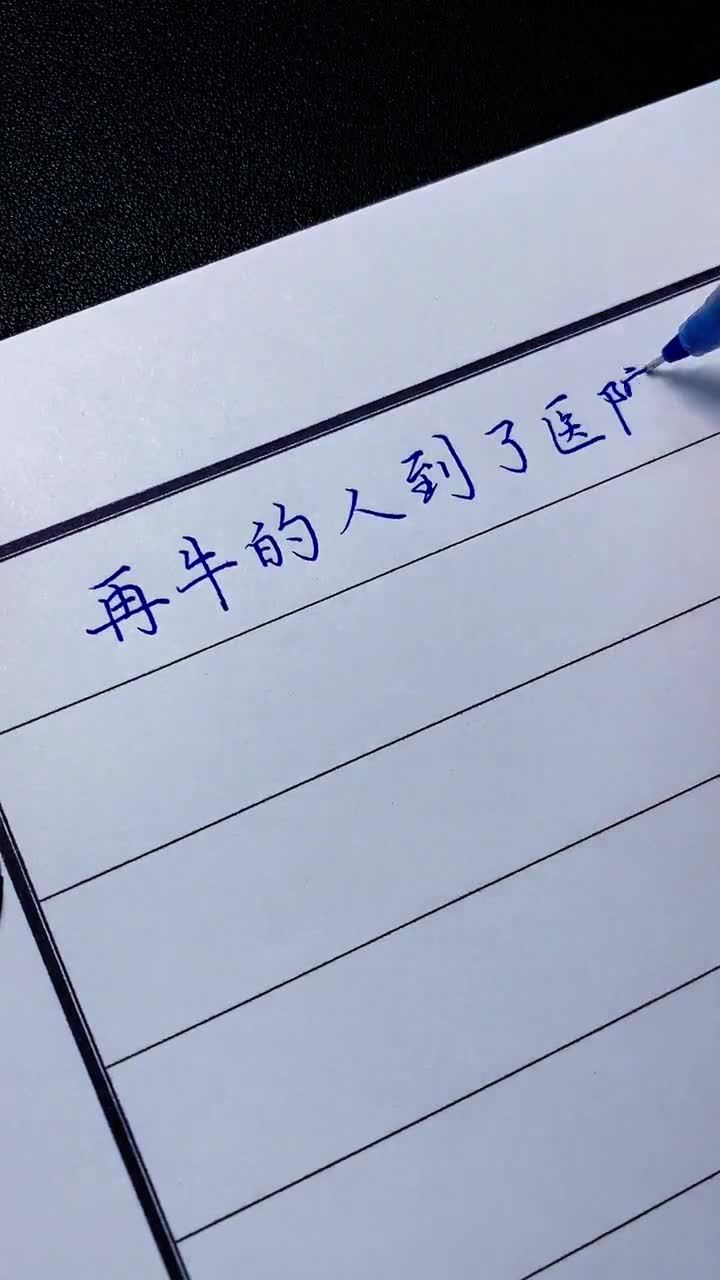 再牛的人到了医